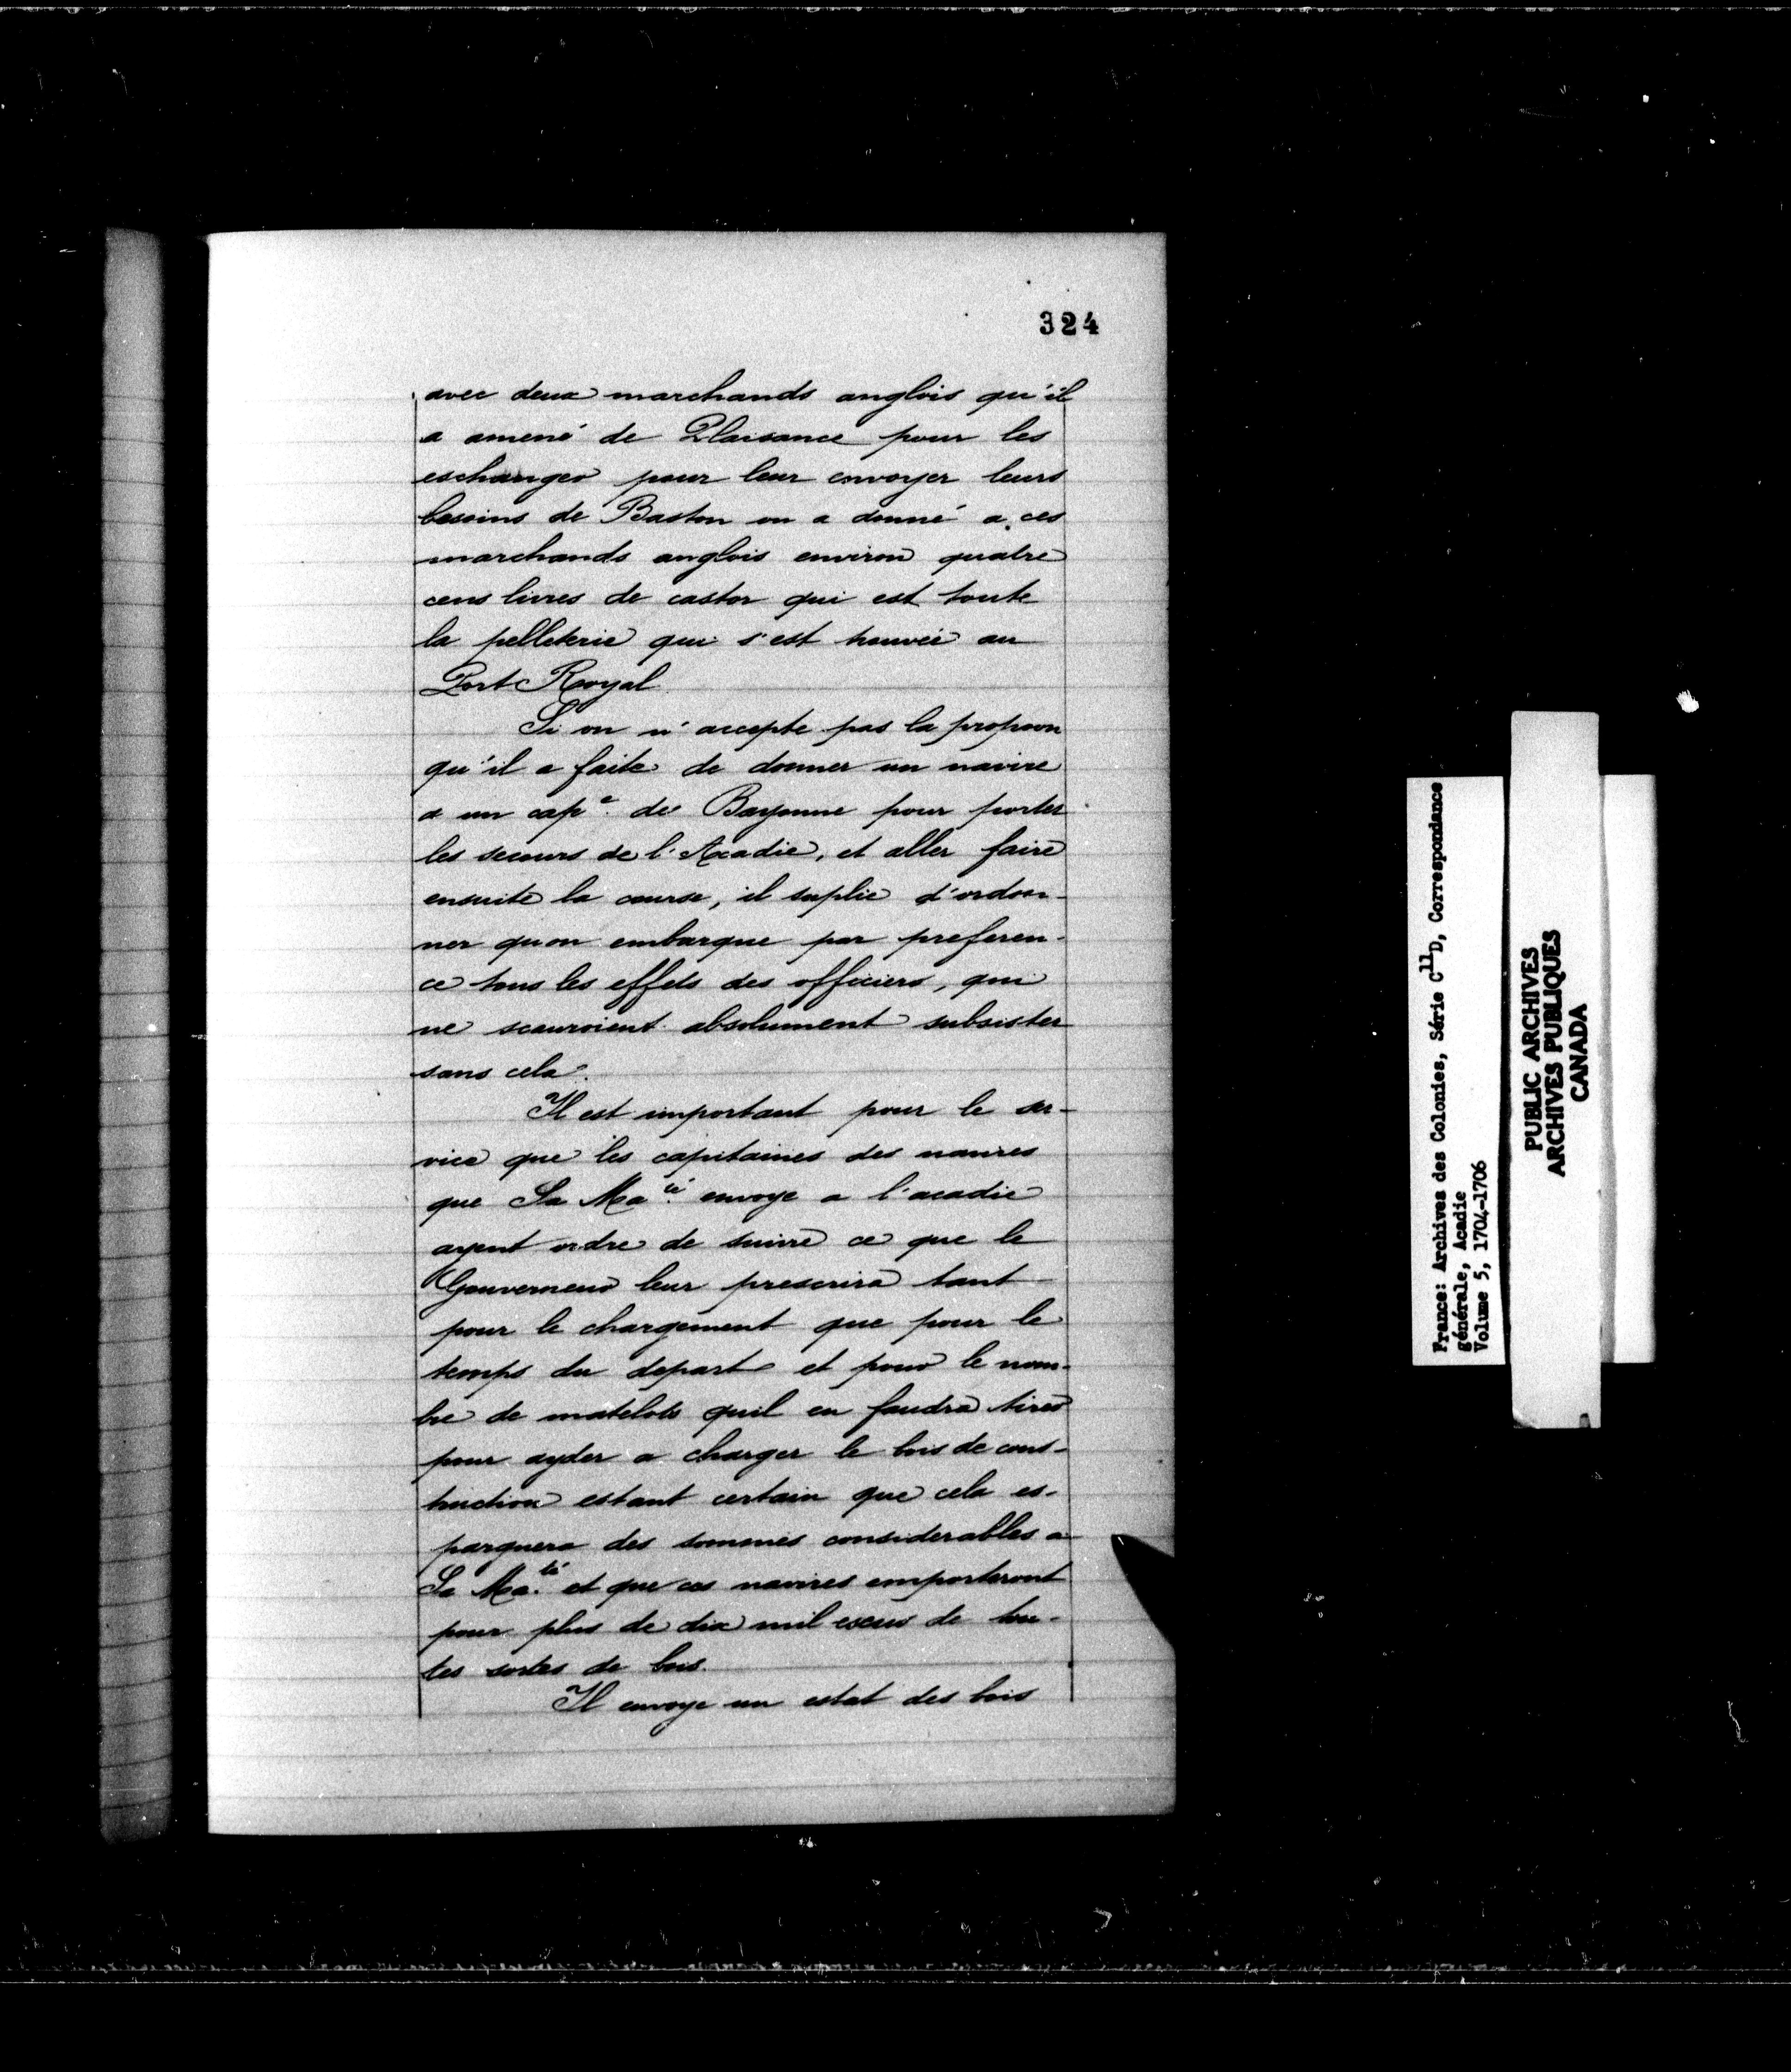 324
avec deux marchands anglois qu'il
a amené de Plaisance pour les
eschanger pour leur envoyer leurs
besoins de Baston on a donné a ces
marchands anglois environ quatre
cens livres de castor qui est toute
la pelleterie qui s'est trouvée au
Port Royal.
Si on n'accepte pas la propoon
qu'il a faite de donner un navire
a un cape. de Bayonne pour porter
les secours de l'Acadie, et aller faire
ensuite la course, il suplie d'ordon-
ner quon embarque par preferen-
ce tous les effets des officiers, qui
ne scauroient absolument subsister
sans cela.
Il est important pour le ser-
vice que les capitaines des navires
que Sa Maté. envoye a l'acadie
ayent ordre de suivre ce que le
Gouverneur leur prescrira tant
pour le chargement que pour le
temps du depart et pour le nom-
bre de matelots quil en faudra tirer
pour ayder a charger le bois de cons-
truction estant certain que cela es-
pargnera des sommes considerables a
Sa Maté. et que ces navires emporteront
pour plus de dix mil escus de tou-
tes sortes de bois.
Il envoye un estat des bois
France: Archives des Colonies, Série C11D, Correspondance
générale, Acadie
Volume 5, 1704-1706
PUBLIC ARCHIVES
ARCHIVES PUBLIQUES
CANADA